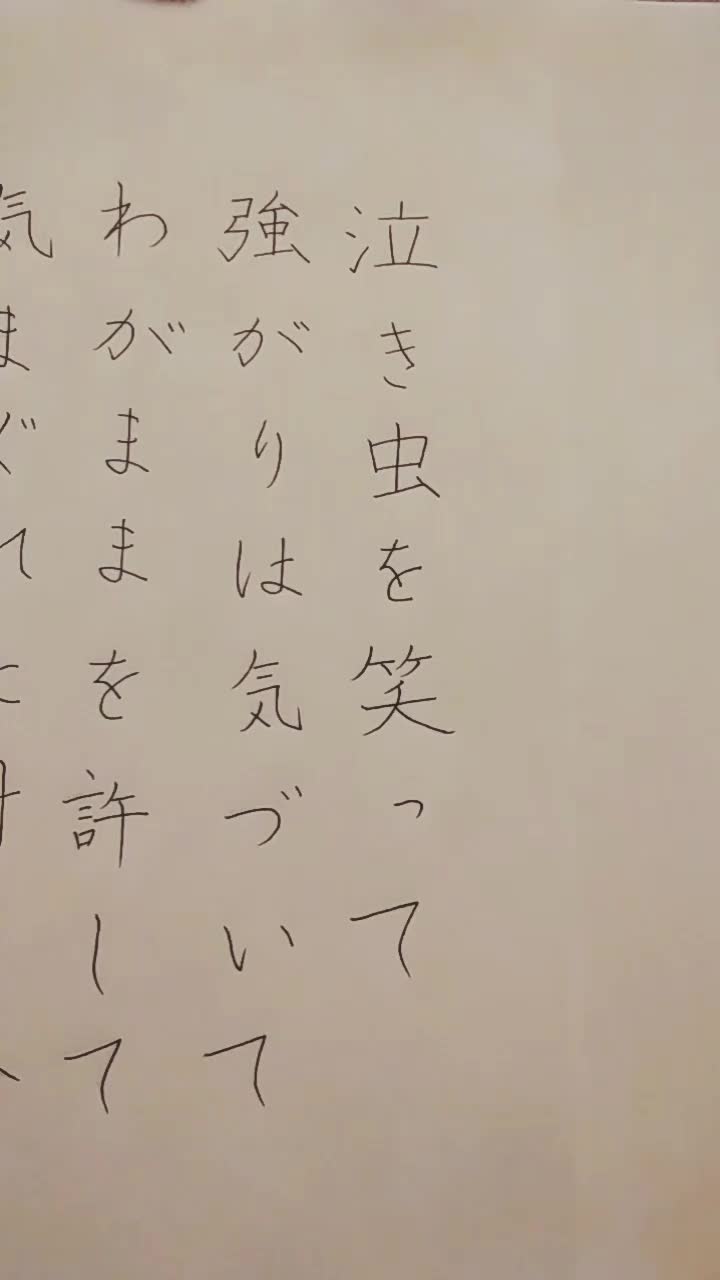 泣き虫を笑って
強がりは気づいて
わがままを許して
気まぐれに付